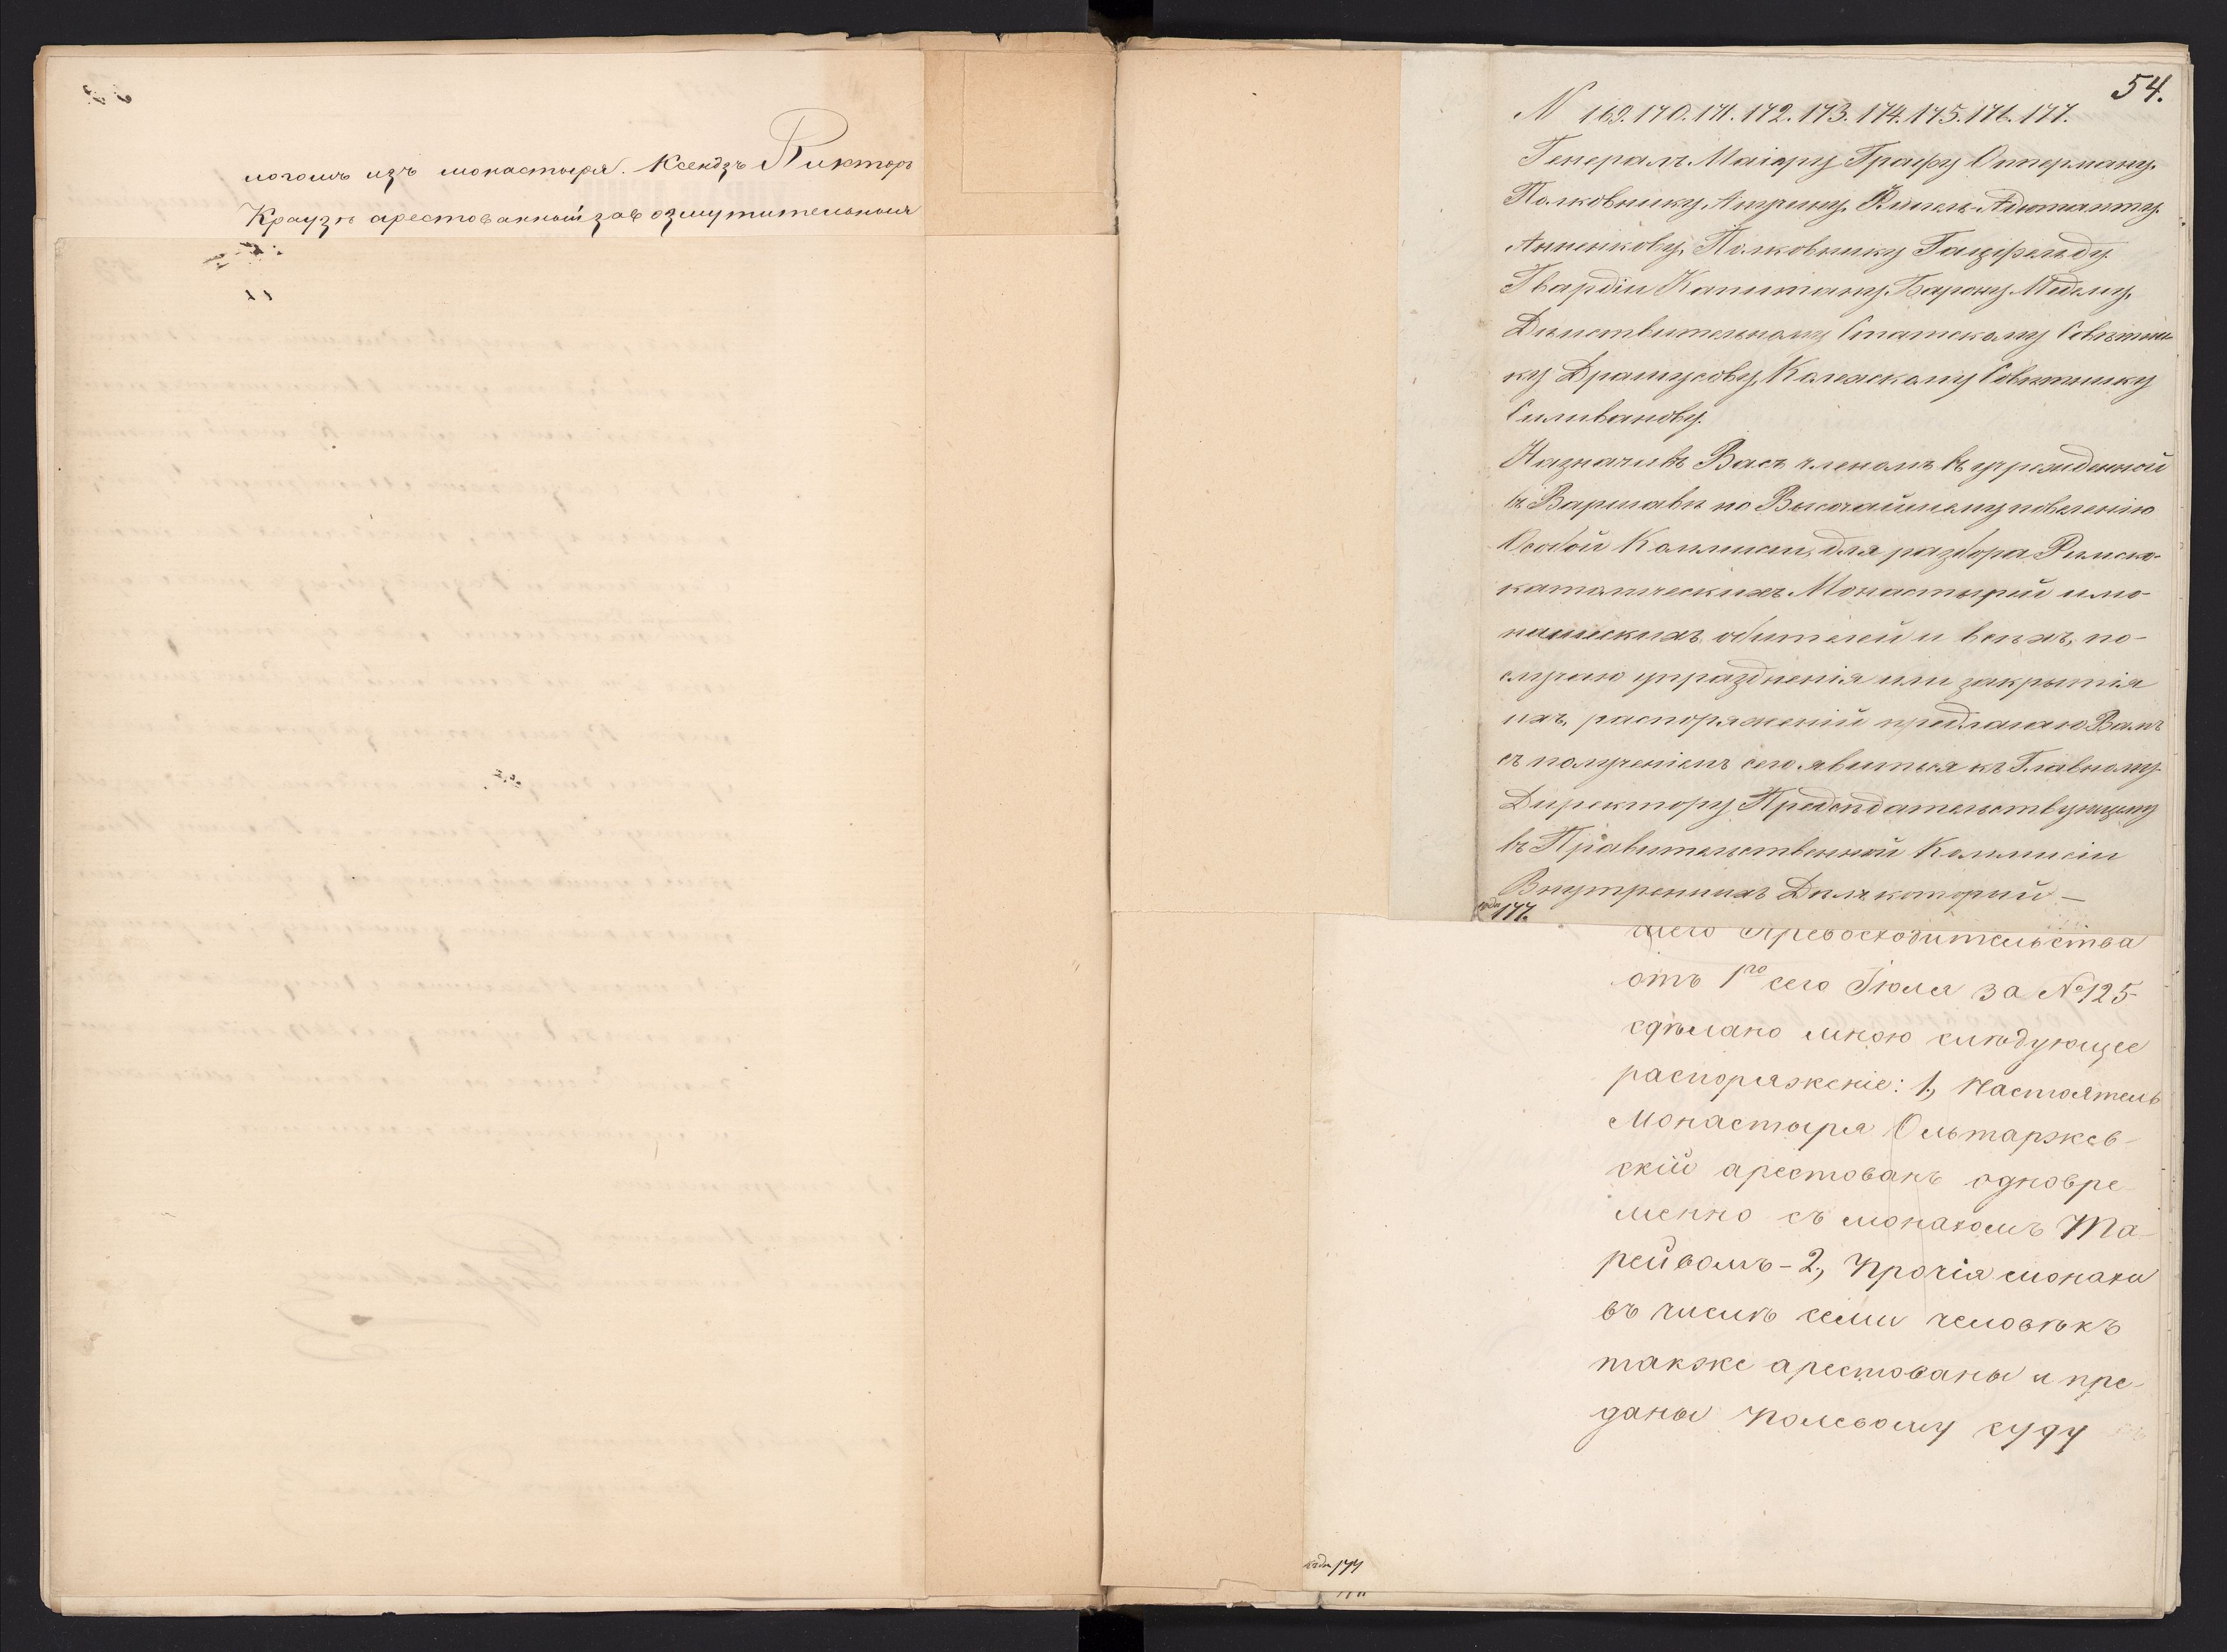 логомъ изъ монастыря. Ксендзъ Викторъ
Краузъ арестованный за возмутительныя
54.
N 169. 170. 171. 172. 173. 174. 175. 176. 177.
Генералъ-Маіору Графу Опперману,
Полковнику Флигель-Адютанту
Анненкову, Полковнику
Гвардіи Капитану Барону
Дѣйствительному Статскому Совѣтни-
ку Драшусову, Колежскому Совѣтнику
Селиванову.
Назначивъ Васъ членомъ въ учрежденной
въ Варшавѣ по Высочайшему повелѣнію
Особой Коммисіи, для разбора Римско-
католическихъ Монастырей и мо-
нашескихъ обителей и всѣхъ, по-
случаю упраздненія или закрытія
ихъ, распоряженій предлагаю Вамъ
съ полученіемъ сего явиться къ Главному
Директору Предсѣдательствующему
въ Правительственной Коммисіи
Внутреннихъ Дѣлъ который –
177.
шего Превосходительства
отъ 1го сего Іюля за №125
сдѣлано мною слѣдующее
распоряженіе: 1, Настоятель
Монастыря Ольтаржев-
скій арестованъ одновре-
менно съ монахомъ Та-
рейвомъ – 2, Прочія монахи
въ числѣ семи человѣкъ
также арестованы и пре-
даны Полевому суду
177